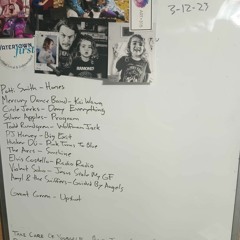 3-12-23
WATERTOWN
first
RAMONES
Patti Smith - Horses
Mercury Dance Band - Kai Wawa
Circle Jerks - Deny Everything
Silver Apples - Program
Todd Rundgren - Wolfman Jack
PJ Harvey - Big Exit
Hüsker Dü - Pink Turns to Blue
The Arcs - Sunshine
Elvis Costello - Radio Radio
Violent Soho - Jesus Stole My GF
Amyl & the Sniffers - Guided By Angels
Upright
Take Care